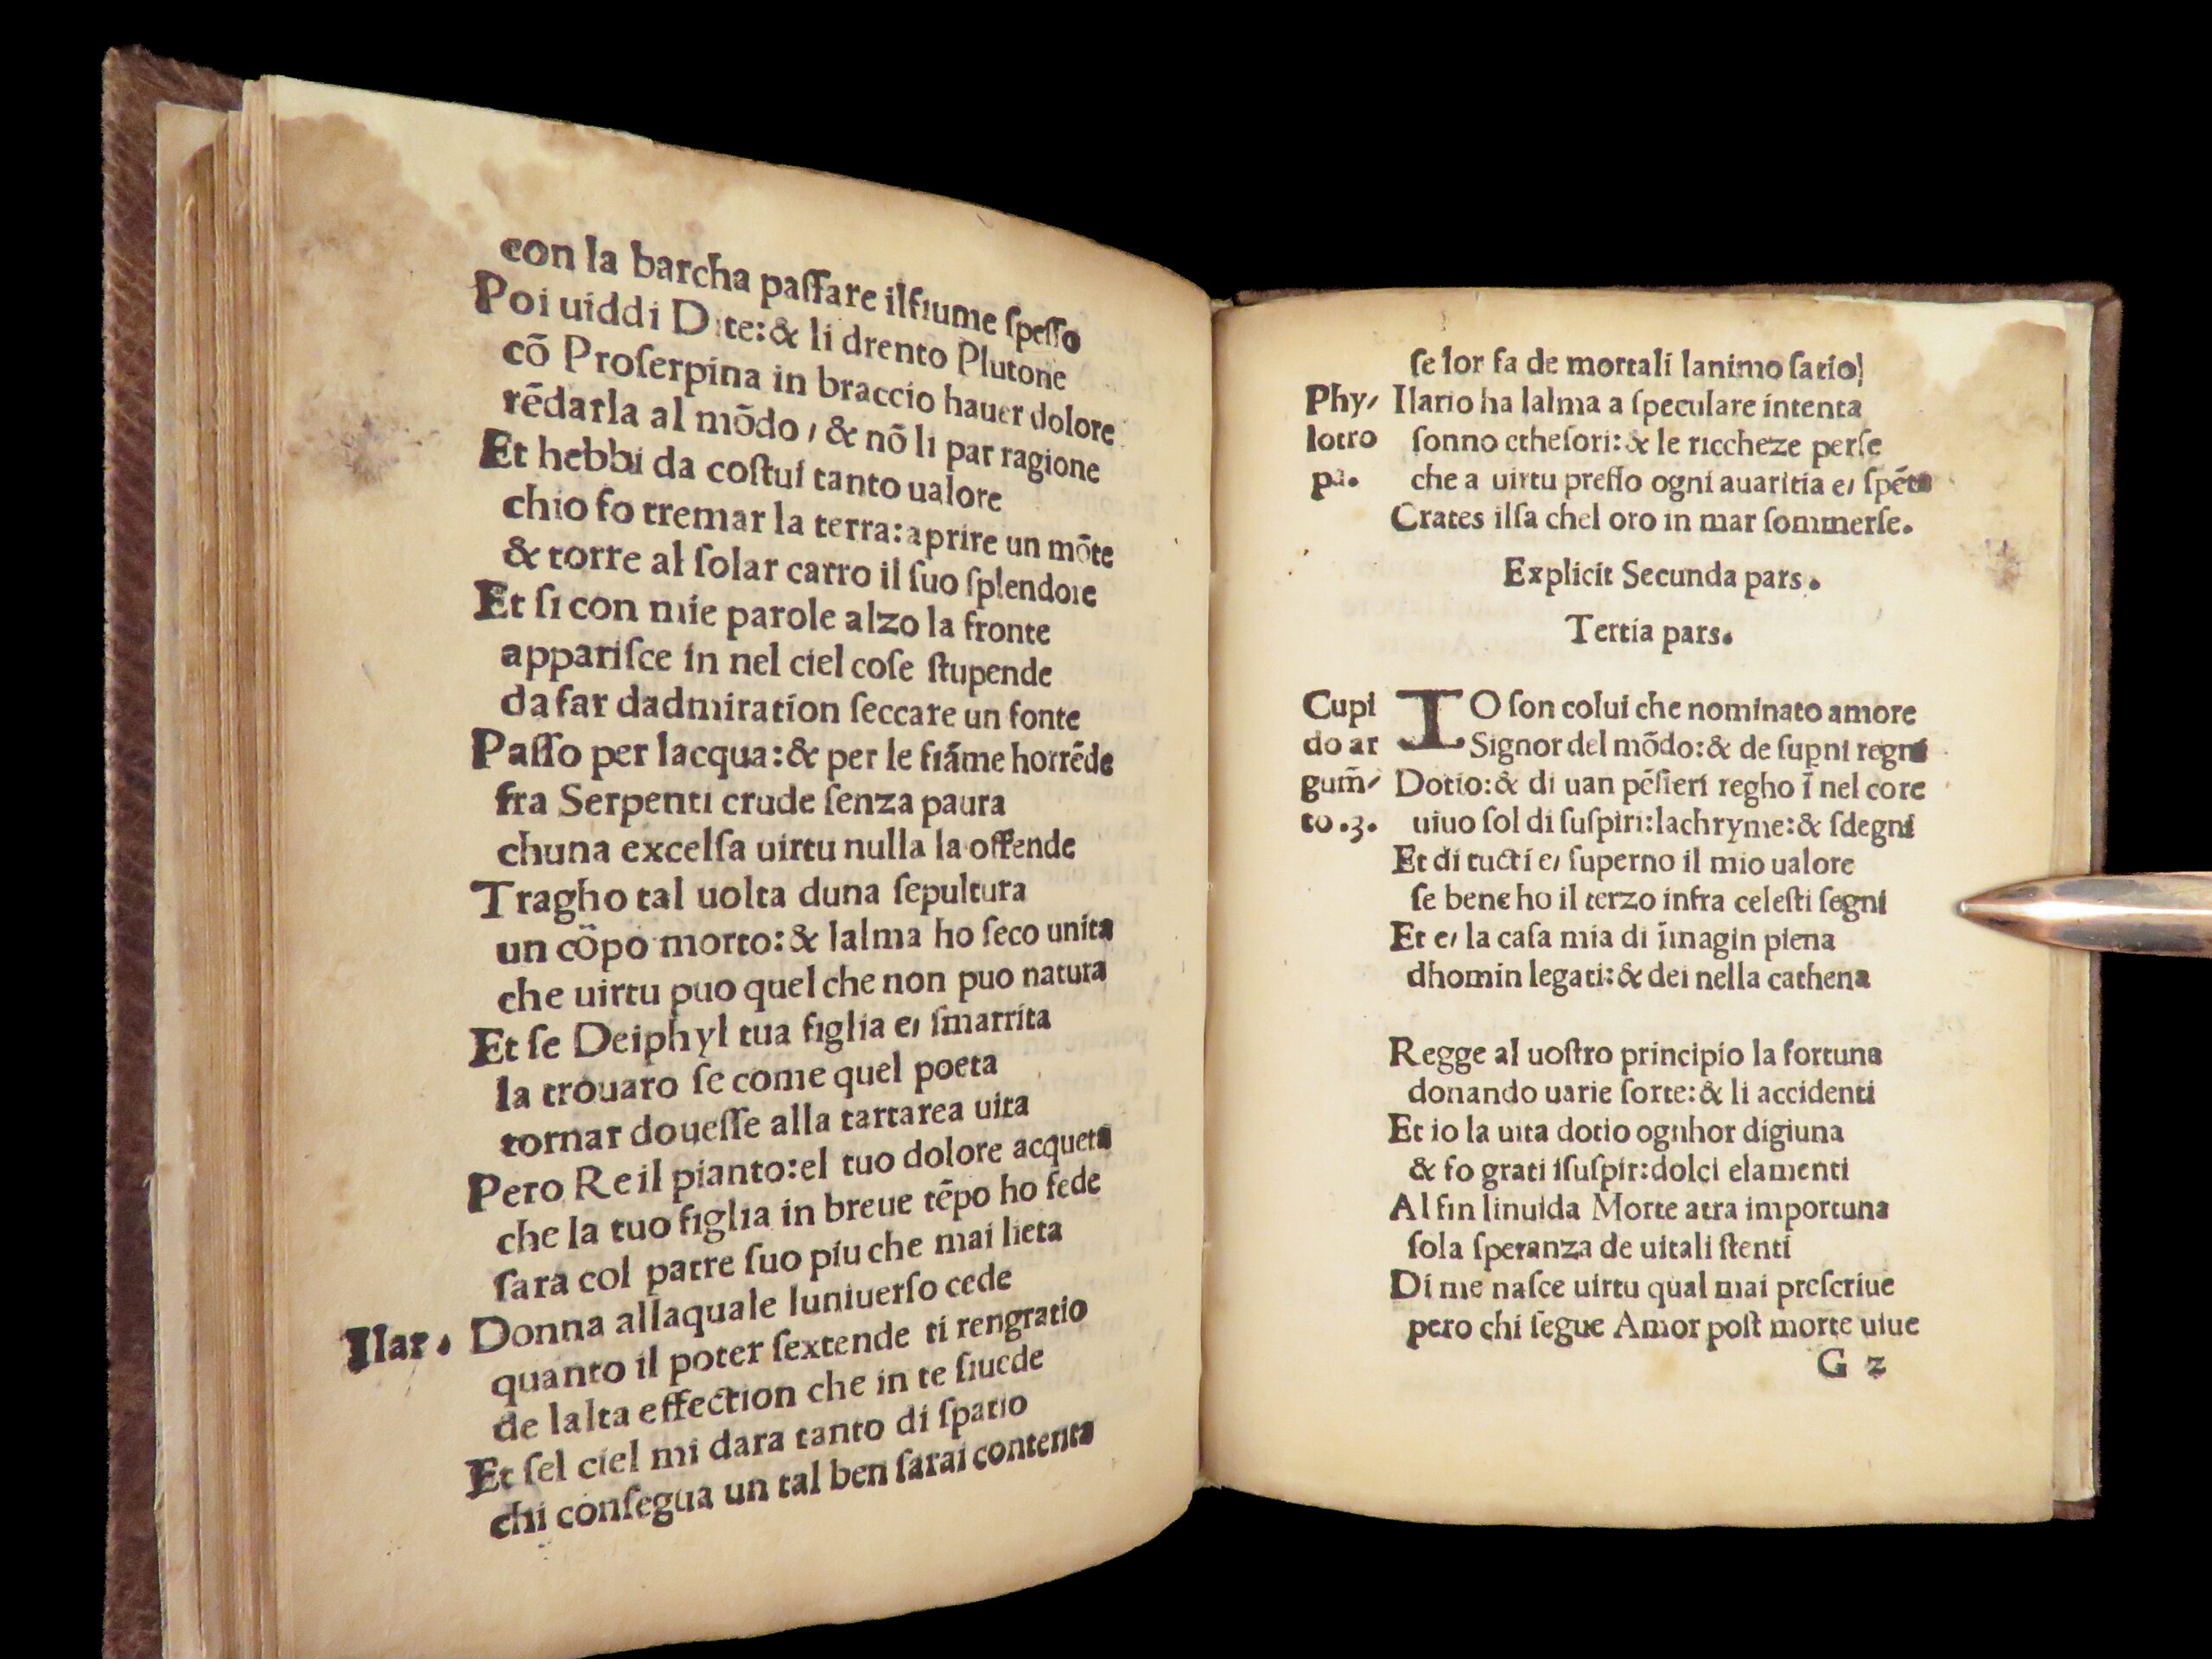 con la barcha paſſare ilfiume ſpeſſo
Poi uiddi Dite:& li drento Plutone
cõ Proſerpina in braccio hauer dolore
rẽdarla al mõdo / & nõ li par ragione
Et hebbi da coſtui tanto ualore
chio fo tremar la terra:aprire un mõte
& torre al ſolar carro il ſuo ſplendore
Et ſi con mie parole alzo la fronte
appariſce in nel ciel coſe ſtupende
da far dadmiration ſeccare un fonte
Paſſo per lacqua:& per le fiãme horrẽde
fra Serpenti crude ſenza paura
chuna excelſa uirtu nulla la offende
Tragho tal uolta duna ſepultura
un cõpo morto:& lalma ho ſeco unita
che uirtu puo quel che non puo natura
Et ſe Deiphyl tua figlia e/ ſmarrita
la trouaro ſe come quel poeta
tornar doueſſe alla tartarea uita
Pero Re il pianto:el tuo dolore acqueta
che la tuo figlia in breue tẽpo ho fede
ſara col patre ſuo piu che mai lieta
Ilar. Donna allaquale luniuerſo cede
quanto il poter ſextende ti rengratio
de lalta effection che in te ſiuede
Et ſel ciel mi dara tanto di ſpatio
chi conſegua un tal ben ſarai contenta
ſe lor fa de mortali lanimo ſatio)
Phy/ Ilario ha lalma a ſpeculare intenta
lotro ſonno etheſori:& le riccheze perſe
pa. che a uirtu preſſo ogni auaritia e/ ſpẽta
Crates ilſa chel oro in mar ſommerſe.
Explicit Secunda pars.
Tertia pars.
Cupi IO ſon colui che nominato amore
do ar Signor del mõdo:& de ſupni regni
gum̃/ Dotio:& di uan pẽſieri regho ĩ nel core
to .3. uiuo ſol di ſuſpiri:lachryme:& ſdegni
Et di tucti e/ ſuperno il mio ualore
ſe bene ho il terzo infra celeſti ſegni
Et e/ la caſa mia di ĩmagin piena
dhomin legati:& dei nella cathena
Regge al uoſtro principio la fortuna
donando uarie ſorte:& li accidenti
Et io la uita dotio ognhor digiuna
& fo grati iſuſpir:dolci elamenti
Al fin linuida Morte atra importuna
ſola ſperanza de uitali ſtenti
Di me naſce uirtu qual mai preſcriue
pero chi ſegue Amor poſt morte uiue
G 2